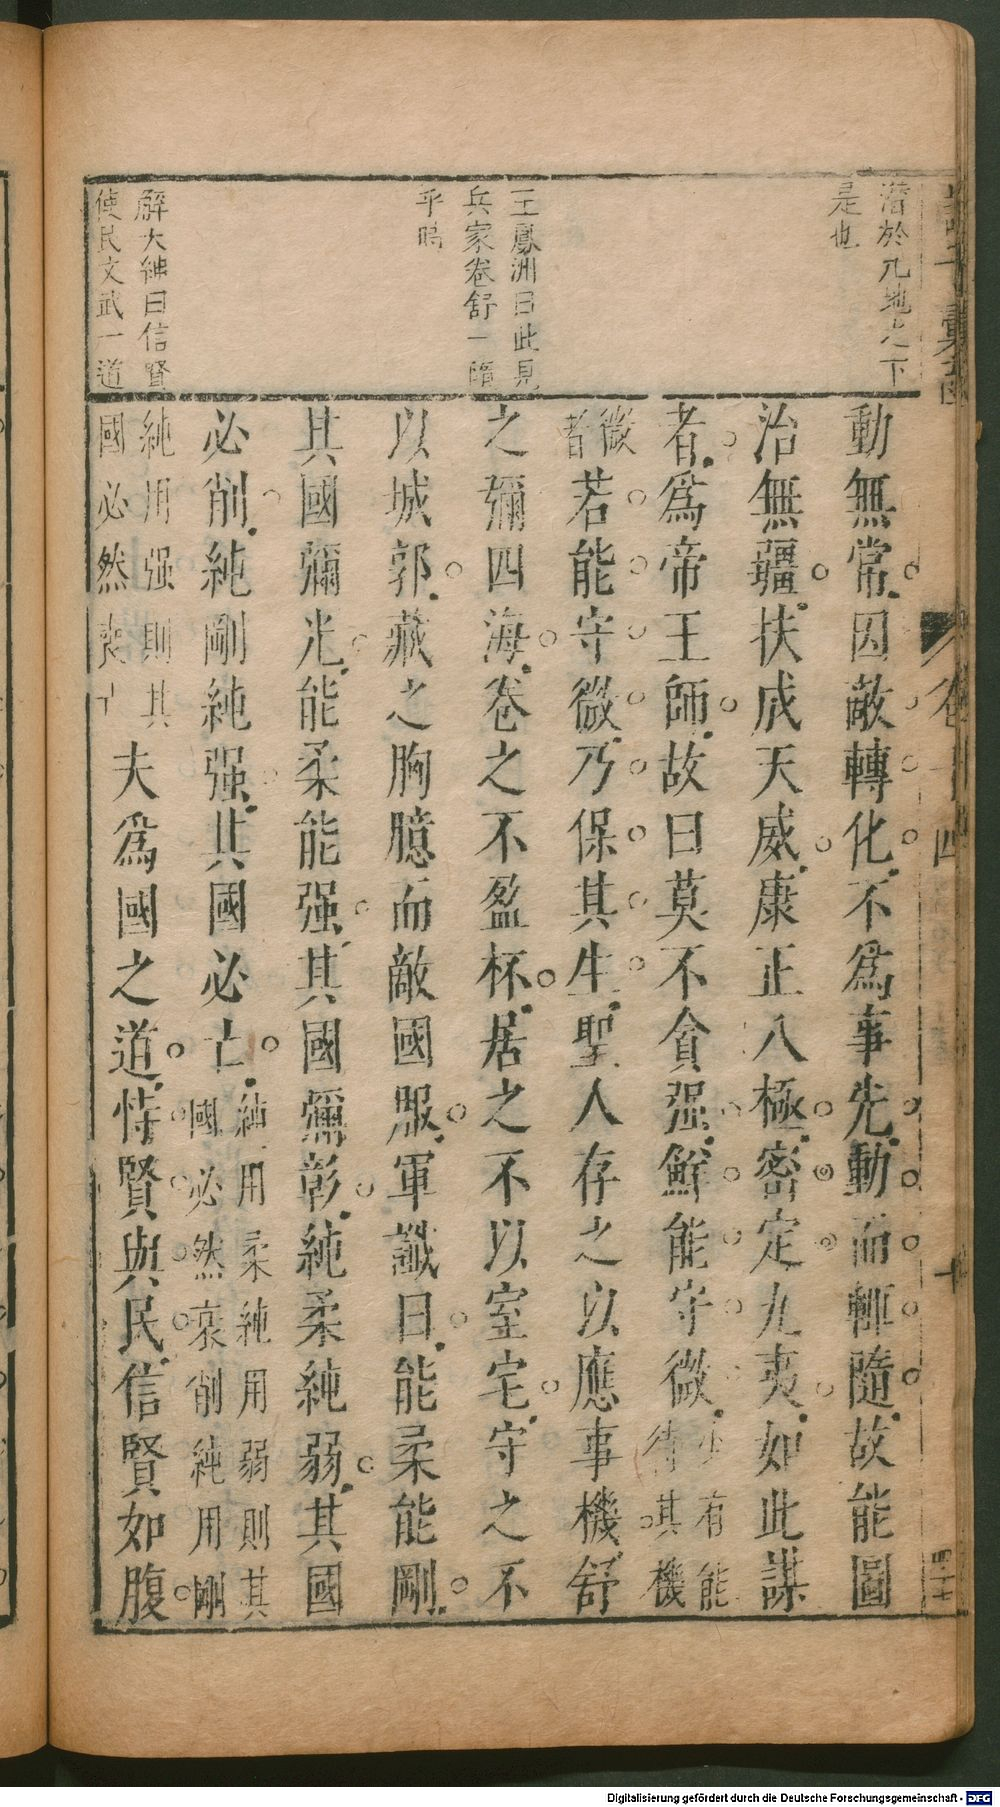 潛於九地之下
是也
王鳳洲曰此見
兵家卷舒一隨
乎時
解大紳曰信賢
使民文武一道
動無常因敵轉化不為事先動而輒隨故能圖
治無疆扶成天威康正八極密定九夷如此謀
者為帝王師故曰莫不貪强鮮能守微少有能待其機
微者若能守微乃保其生聖人存之以應事機舒
之彌四海卷之不盈杯居之不以室宅守之不
以城郭藏之胸臆而敵國服軍讖曰能柔能剛
其國彌光能柔能强其國彌彰純柔純弱其國
必削純剛純强其國必亡純用柔純用弱則其國必然衰削純用剛
純用强則其國必然喪亡夫為國之道恃賢與民信賢如腹
卷十四
十
Digitalisierung gefördert durch die Deutsche Forschungsgemeinschaft - DFG